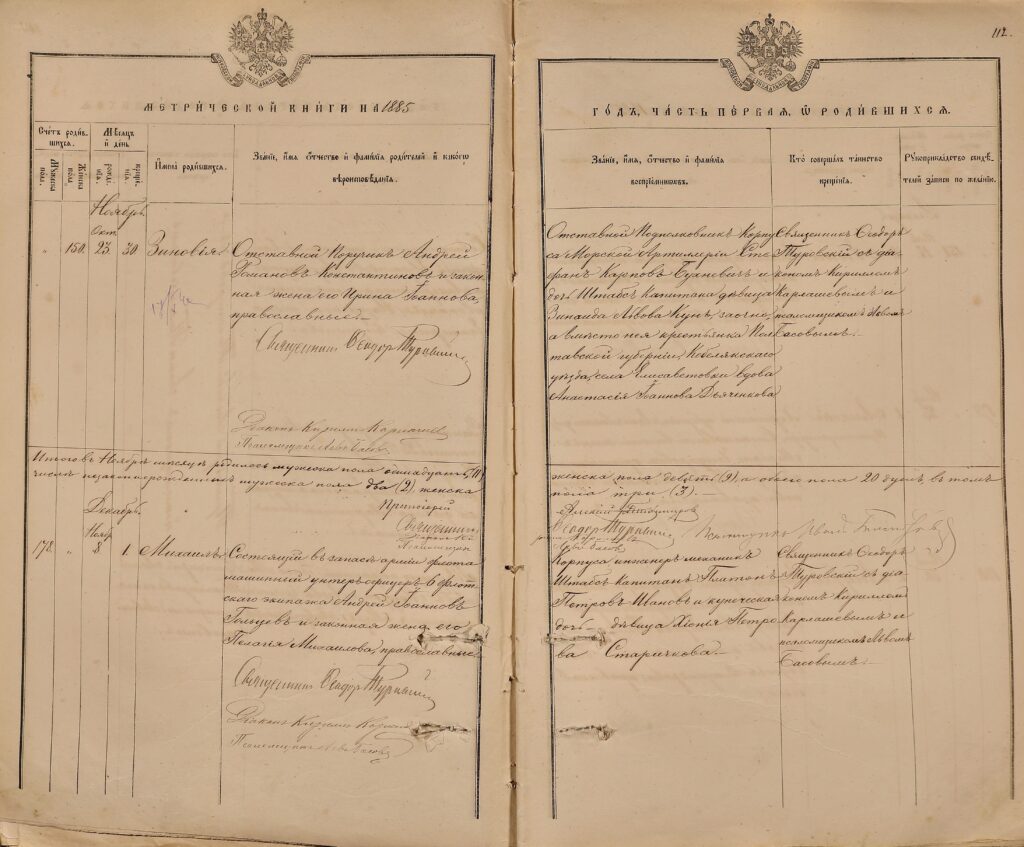 112.
МЕТРИЧЕСКОЙ КНИГИ НА 1885
ГОДЪ, ЧАСТЬ ПЕРВАЯ, Ѿ РОДИВШИХСЯ.
Счетъ родившихся.
Мужеска пола.
Женска пола.
Мѣсяцъ и день
рожденія.
крещенія.
Имена родившихся.
Званіе, имя, отчество и фамилія родителей и какого
вѣроисповѣданія.
Званіе, имя, отчество и фамилія
воспріемниковъ.
Кто совершалъ таинство
крещенія.
Рукоприкладство свидѣ-
телей записи по желанію.
Ноябрь
Окт.
„ 150. 23. 30 Зиновія.
Отставной Поручикъ Андрей
Романовъ Константиновъ и закон
ная жена его Ирина Іоаннова,
православные.
Священникъ Ѳеодоръ Туровскій
Діаконъ Кириллъ Карлашевъ
Псаломщикъ Левъ Басовъ
Отставной Подполковникъ Корпу
са Морской Артиллеріи Сте
фанъ Карповъ и
дочь Штабсъ Капитана дѣвица
Зинаида Львова Кунъ, заочно,
а вмѣсто нея крестьянка Пол
тавской губерніи, Кобелякскаго
уѣзда, села Елисаветовки вдова
Анастасія Іоаннова Дьяченкова
Священникъ Ѳеодоръ
Туровскій съ діа
кономъ Кирилломъ
Карлашевымъ и
псаломщикомъ Львомъ
Басовымъ.
Итого въ Ноябрѣ мѣсяцѣ родилось мужеска пола одинадцать (11)
женска пола девять (9), а обоего пола 20 душъ, въ томъ
числѣ мужеска пола два (2), женска
пола три (3).
Протоіерей
Священникъ Ѳеодоръ Туровскій
Псаломщикъ Левъ Басовъ
Декабрь
Ноябр
178. „ 8 1. Михаилъ.
Состоящій въ запасѣ арміи и флота
машинный унтеръ офицеръ 6 флот
скаго экипажа Андрей Іоанновъ
Голцовъ и законная жена его
Пелагія Михаилова, православные
Священникъ Ѳеодоръ Туровскій
Діаконъ Кириллъ Карлашевъ
Псаломщикъ Левъ Басовъ
Корпуса инженеръ механикъ
Штабсъ Капитанъ Платонъ
Петровъ Ивановъ и купеческая
дочь дѣвица Хіонія Петро
ва Старичкова.
Священникъ Ѳеодоръ
Туровскій съ діа
кономъ Кирилломъ
Карлашевымъ и
псаломщикомъ Львомъ
Басовымъ.